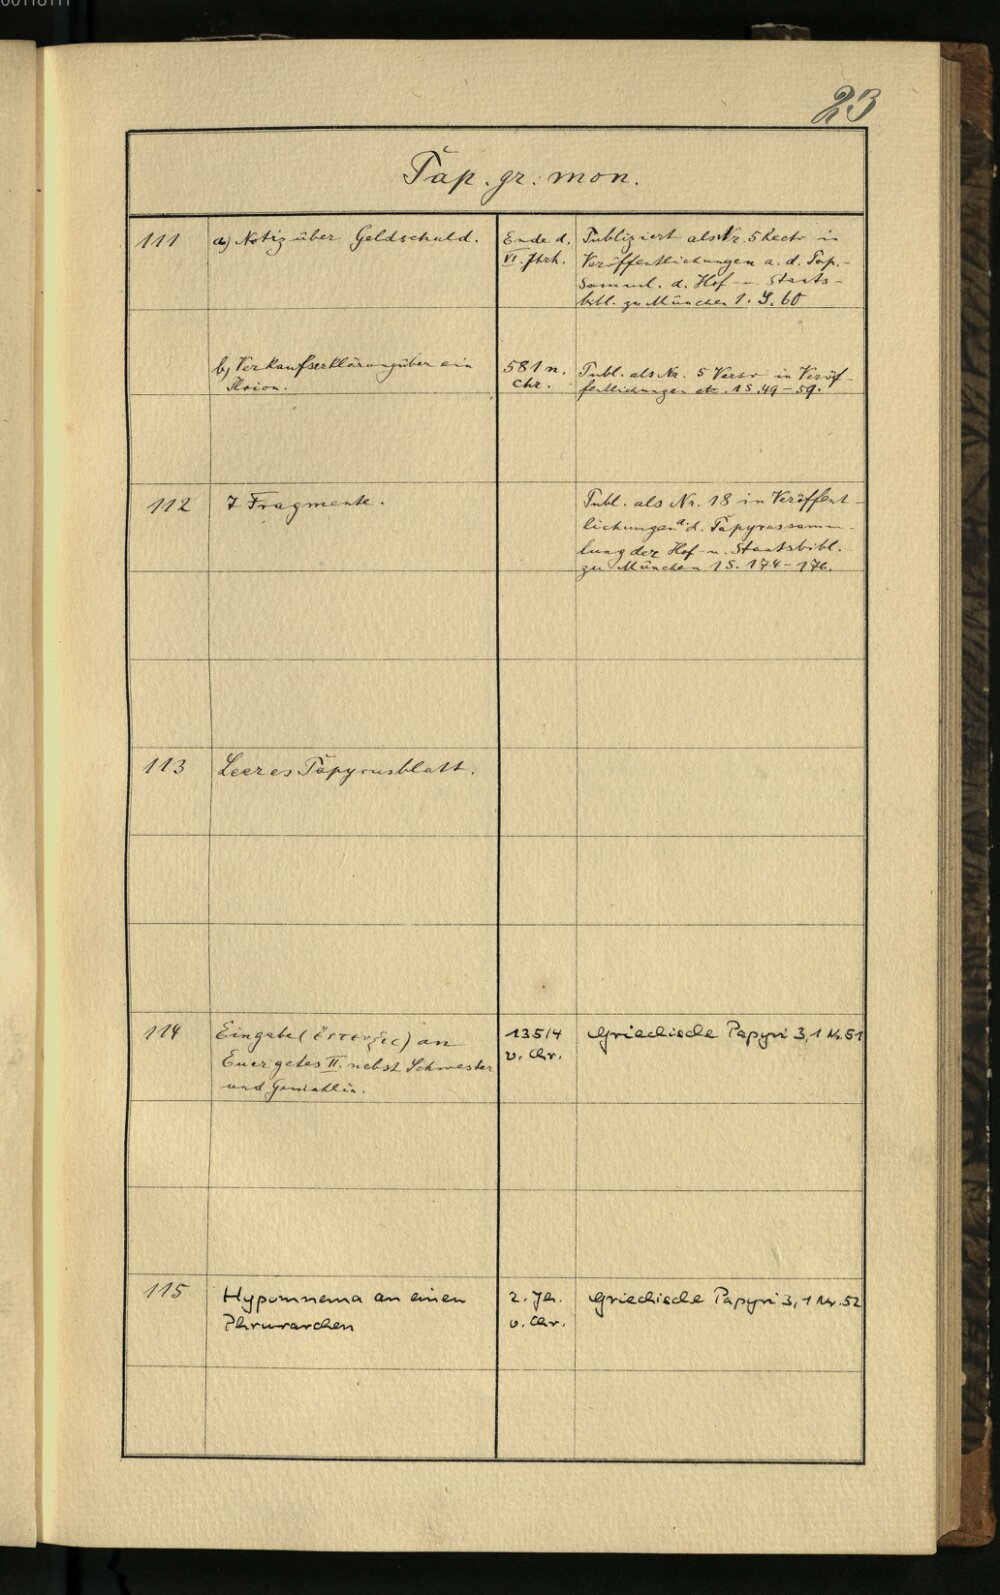 23
Pap. gr. mon.
111 a) Notiz über Geldschuld. Ende d. Publiziert als Nr. 5 Recto in
VI. Jhrh. Veröffentlichungen a. d. Pap.-
Samml. d. Hof- u. Staats-
bibl. zu München 1. S. 60
b) Verkaufserklärung über ein 581 n. Publ. als Nr. 5 Verso in Veröf-
Ploion. Chr. fentlichungen etc. 1 S. 49-59.
112 7 Fragmente. Publ. als Nr. 18 in Veröffent-
lichungen a. d. Papyrussamm-
lung der Hof- u. Staatsbibl.
zu München 1 S. 174-176.
113 Leeres Papyrusblatt.
114 Eingabe (ἔντευξις) an 135/4 Griechische Papyri 3, 1 Nr. 51
Euergetes II. nebst Schwester v. Chr.
und Gemahlin.
115 Hypomnema an einen 2. Jh. Griechische Papyri 3, 1 Nr. 52
Phrurarchen v. Chr.